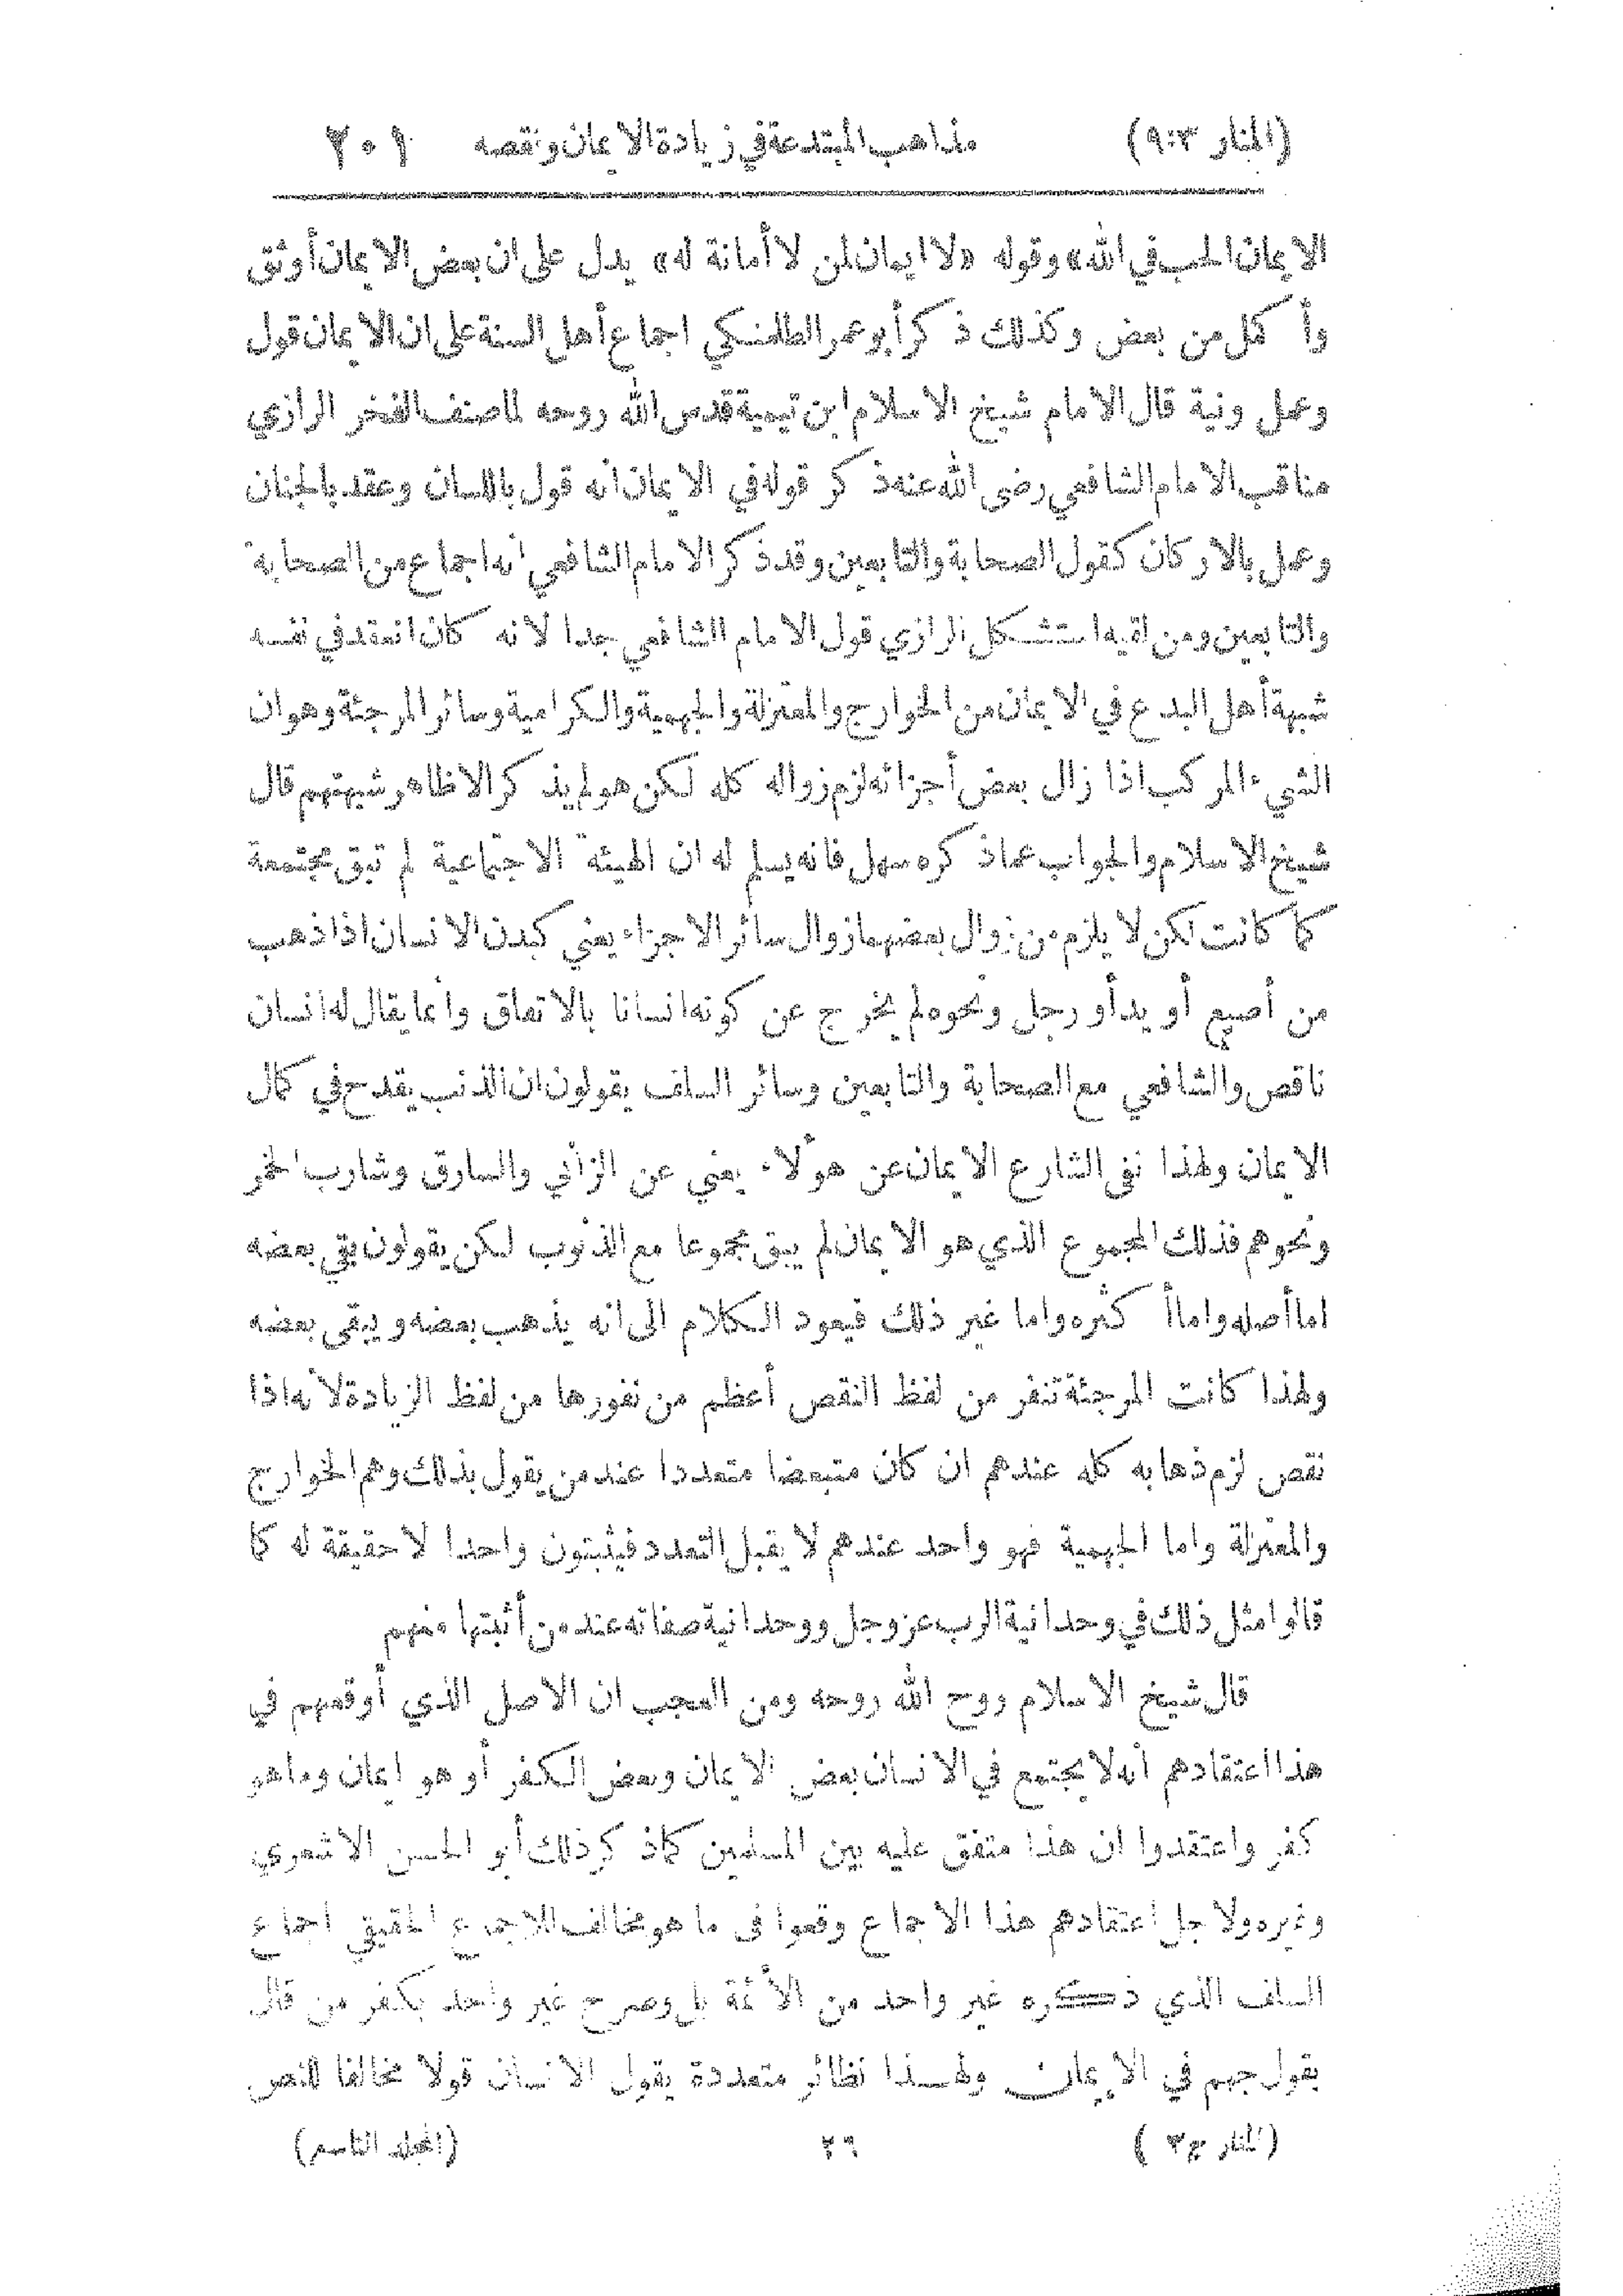 (المنار ٩:٣) مذاهب المبتدعة في زيادة الايمان ونقصه ٢٠١
الايمان الحب في الله» وقوله «لا ايمان لمن لا أمانة له» يدل على ان بعض الايمان أوثق
وأكمل من بعض وكذلك ذكر أبو عمر الطلمنكي اجماع أهل السنة على ان الايمان قول
وعمل ونية قال الامام شيخ الاسلام ابن تيمية قدس الله روحه لما صنف الفخر الرازي
مناقب الامام الشافعي رضى الله عنه ذكر قوله في الايمان انه قول باللسان وعقد بالجنان
وعمل بالاركان كقول الصحابة والتابعين وقد ذكر الامام الشافعي انه اجماع من الصحابة
والتابعين ومن لقيه استشكل الرازي قول الامام الشافعي جدا لانه كان انعقد في نفسه
شبهة أهل البدع في الايمان من الخوارج والمعتزلة والجهمية والكرامية وسائر المرجئة وهو ان
الشيء المركب اذا زال بعض أجزائه لزم زواله كله لكن هو لم يذكر الا ظاهر شبهتهم قال
شيخ الاسلام والجواب عما ذكره سهل فانه يسلم له ان الهيئة الاجتماعية لم تبق مجتمعة
كما كانت لكن لا يلزم من زوال بعضها زوال سائر الاجزاء يعني كبدن الانسان اذا ذهب
من أصبع أو يد أو رجل ونحوه لم يخرج عن كونه انسانا بالاتفاق وانما يقال له انسان
ناقص والشافعي مع الصحابة والتابعين وسائر السلف يقولون ان الذنب يقدح في كمال
الايمان ولهذا نفى الشارع الايمان عن هؤلاء يعني عن الزاني والسارق وشارب الخمر
ونحوهم فذلك المجموع الذي هو الايمان لم يبق مجموعا مع الذنوب لكن يقولون بقي بعضه
اما أصله واما أكثره واما غير ذلك فيعود الكلام الى انه يذهب بعضه ويبقى بعضه
ولهذا كانت المرجئة تنفر من لفظ النقص أعظم من نفورها من لفظ الزيادة لانه اذا
نقص لزم ذهابه كله عندهم ان كان متبعضا متعددا عند من يقول بذلك وهم الخوارج
والمعتزلة واما الجهمية فهو واحد عندهم لا يقبل التعدد فيثبتون واحدا لا حقيقة له كما
قالوا مثل ذلك في وحدانية الرب عز وجل ووحدانية صفاته عند من أثبتها منهم
قال شيخ الاسلام روح الله روحه ومن العجب ان الاصل الذي أوقعهم في
هذا اعتقادهم أنه لا يجتمع في الانسان بعض الايمان وبعض الكفر أو هو ايمان وما هو
كفر واعتقدوا ان هذا متفق عليه بين المسلمين كما ذكر ذلك أبو الحسن الاشعري
وغيره ولاجل اعتقادهم هذا الاجماع وقعوا فى ما هو مخالف للاجماع الحقيقي اجماع
السلف الذي ذكره غير واحد من الأئمة بل وصرح غير واحد بكفر من قال
بقول جهم في الايمان ولهذا نظائر متعددة يقول الانسان قولا مخالفا للنص
(المنار ج ٣) ٢٦ (المجلد التاسع)